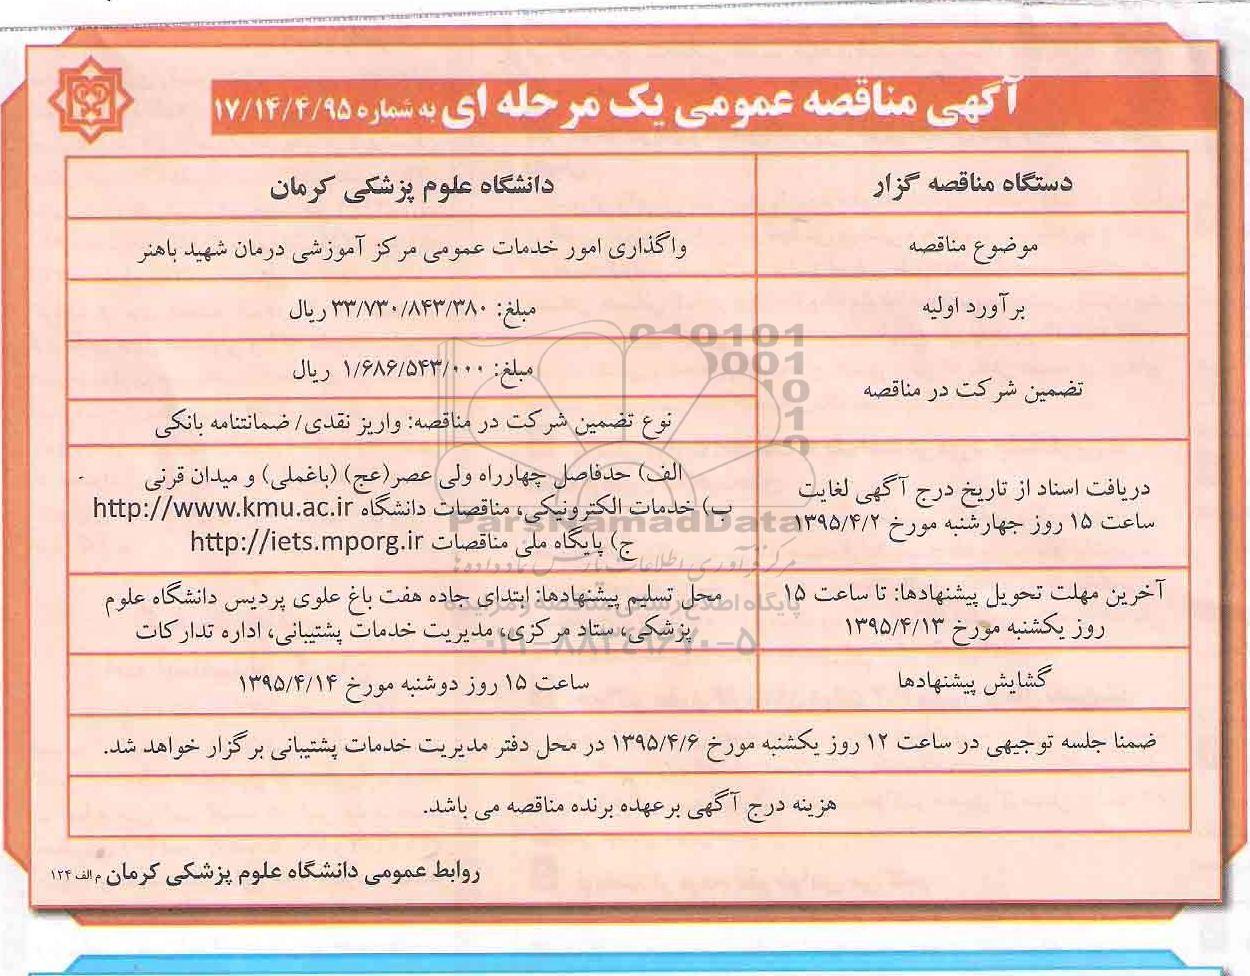 آگهی مناقصه عمومی یک مرحله ای به شماره ۱۷/۱۴/۴/۹۵
دستگاه مناقصه گزار
دانشگاه علوم پزشکی کرمان
موضوع مناقصه
واگذاری امور خدمات عمومی مرکز آموزشی درمان شهید باهنر
برآورد اولیه
مبلغ: ۳۳/۷۳۰/۸۴۳/۳۸۰ ریال
تضمین شرکت در مناقصه
مبلغ: ۱/۶۸۶/۵۴۳/۰۰۰ ریال
نوع تضمین شرکت در مناقصه: واریز نقدی/ ضمانتنامه بانکی
دریافت اسناد از تاریخ درج آگهی لغایت
ساعت ۱۵ روز چهارشنبه مورخ ۱۳۹۵/۴/۲
الف) حدفاصل چهارراه ولی عصر(عج) (باغملی) و میدان قرنی
ب) خدمات الکترونیکی، مناقصات دانشگاه http://www.kmu.ac.ir
ج) پایگاه ملی مناقصات http://iets.mporg.ir
آخرین مهلت تحویل پیشنهادها: تا ساعت ۱۵
روز یکشنبه مورخ ۱۳۹۵/۴/۱۳
محل تسلیم پیشنهادها: ابتدای جاده هفت باغ علوی پردیس دانشگاه علوم
پزشکی، ستاد مرکزی، مدیریت خدمات پشتیبانی، اداره تدارکات
گشایش پیشنهادها
ساعت ۱۵ روز دوشنبه مورخ ۱۳۹۵/۴/۱۴
ضمنا جلسه توجیهی در ساعت ۱۲ روز یکشنبه مورخ ۱۳۹۵/۴/۶ در محل دفتر مدیریت خدمات پشتیبانی برگزار خواهد شد.
هزینه درج آگهی برعهده برنده مناقصه می باشد.
روابط عمومی دانشگاه علوم پزشکی کرمان م الف ۱۲۴
ParsNamadData